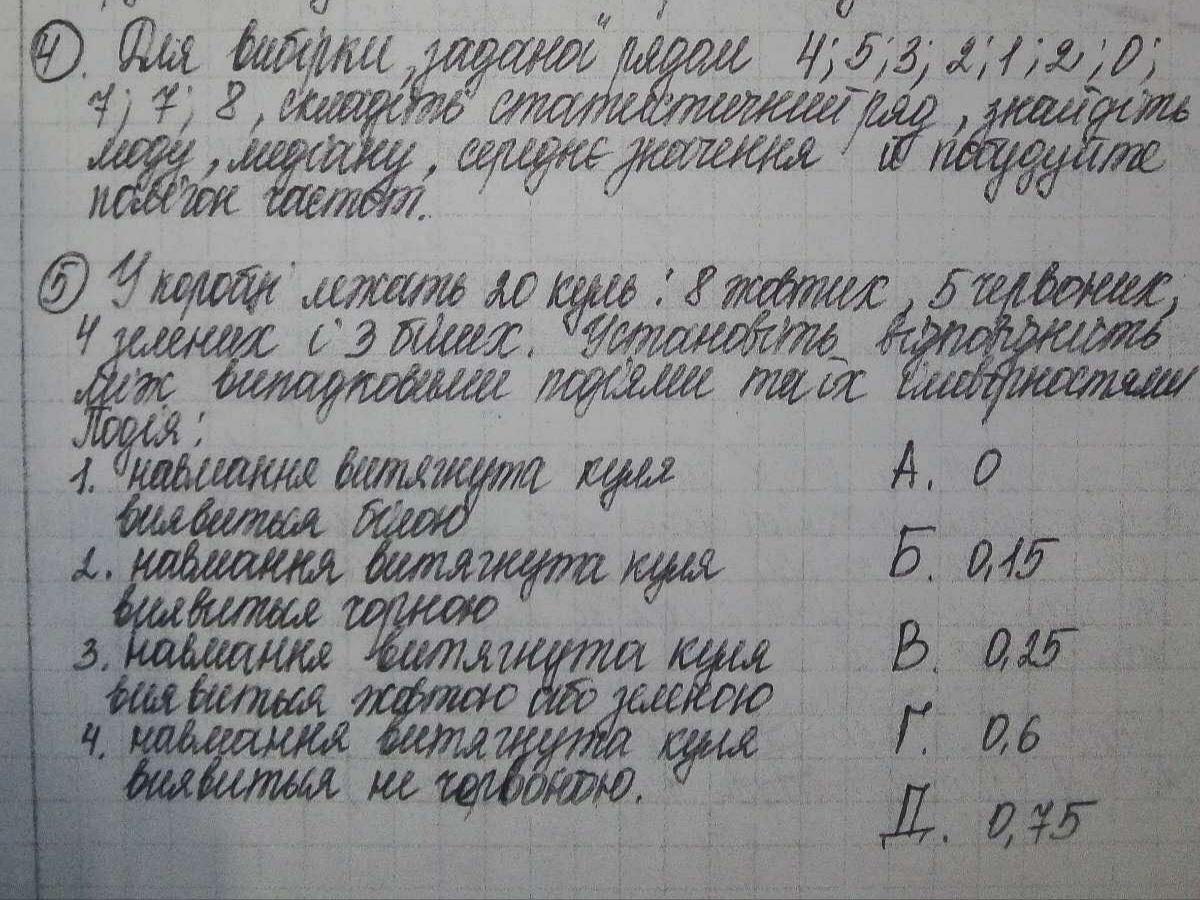 4. Для вибірки, заданої рядом 4; 5; 3; 2; 1; 2; 0;
7; 7; 8, складіть статистичний ряд, знайдіть
моду, медіану, середнє значення й побудуйте
полігон частот.
5 У коробці лежать 20 куль: 8 жовтих, 5 червоних,
4 зелених і 3 білих. Установіть відповідність
між випадковими подіями та їх ймовірностями
Подія:
1. навмання витягнута куля А. 0
виявиться білою
2. навмання витягнута куля Б. 0,15
виявиться чорною
3. навмання витягнута куля В. 0,25
виявиться жовтою або зеленою
4. навмання витягнута куля Г. 0,6
виявиться не червоною.
Д. 0,75